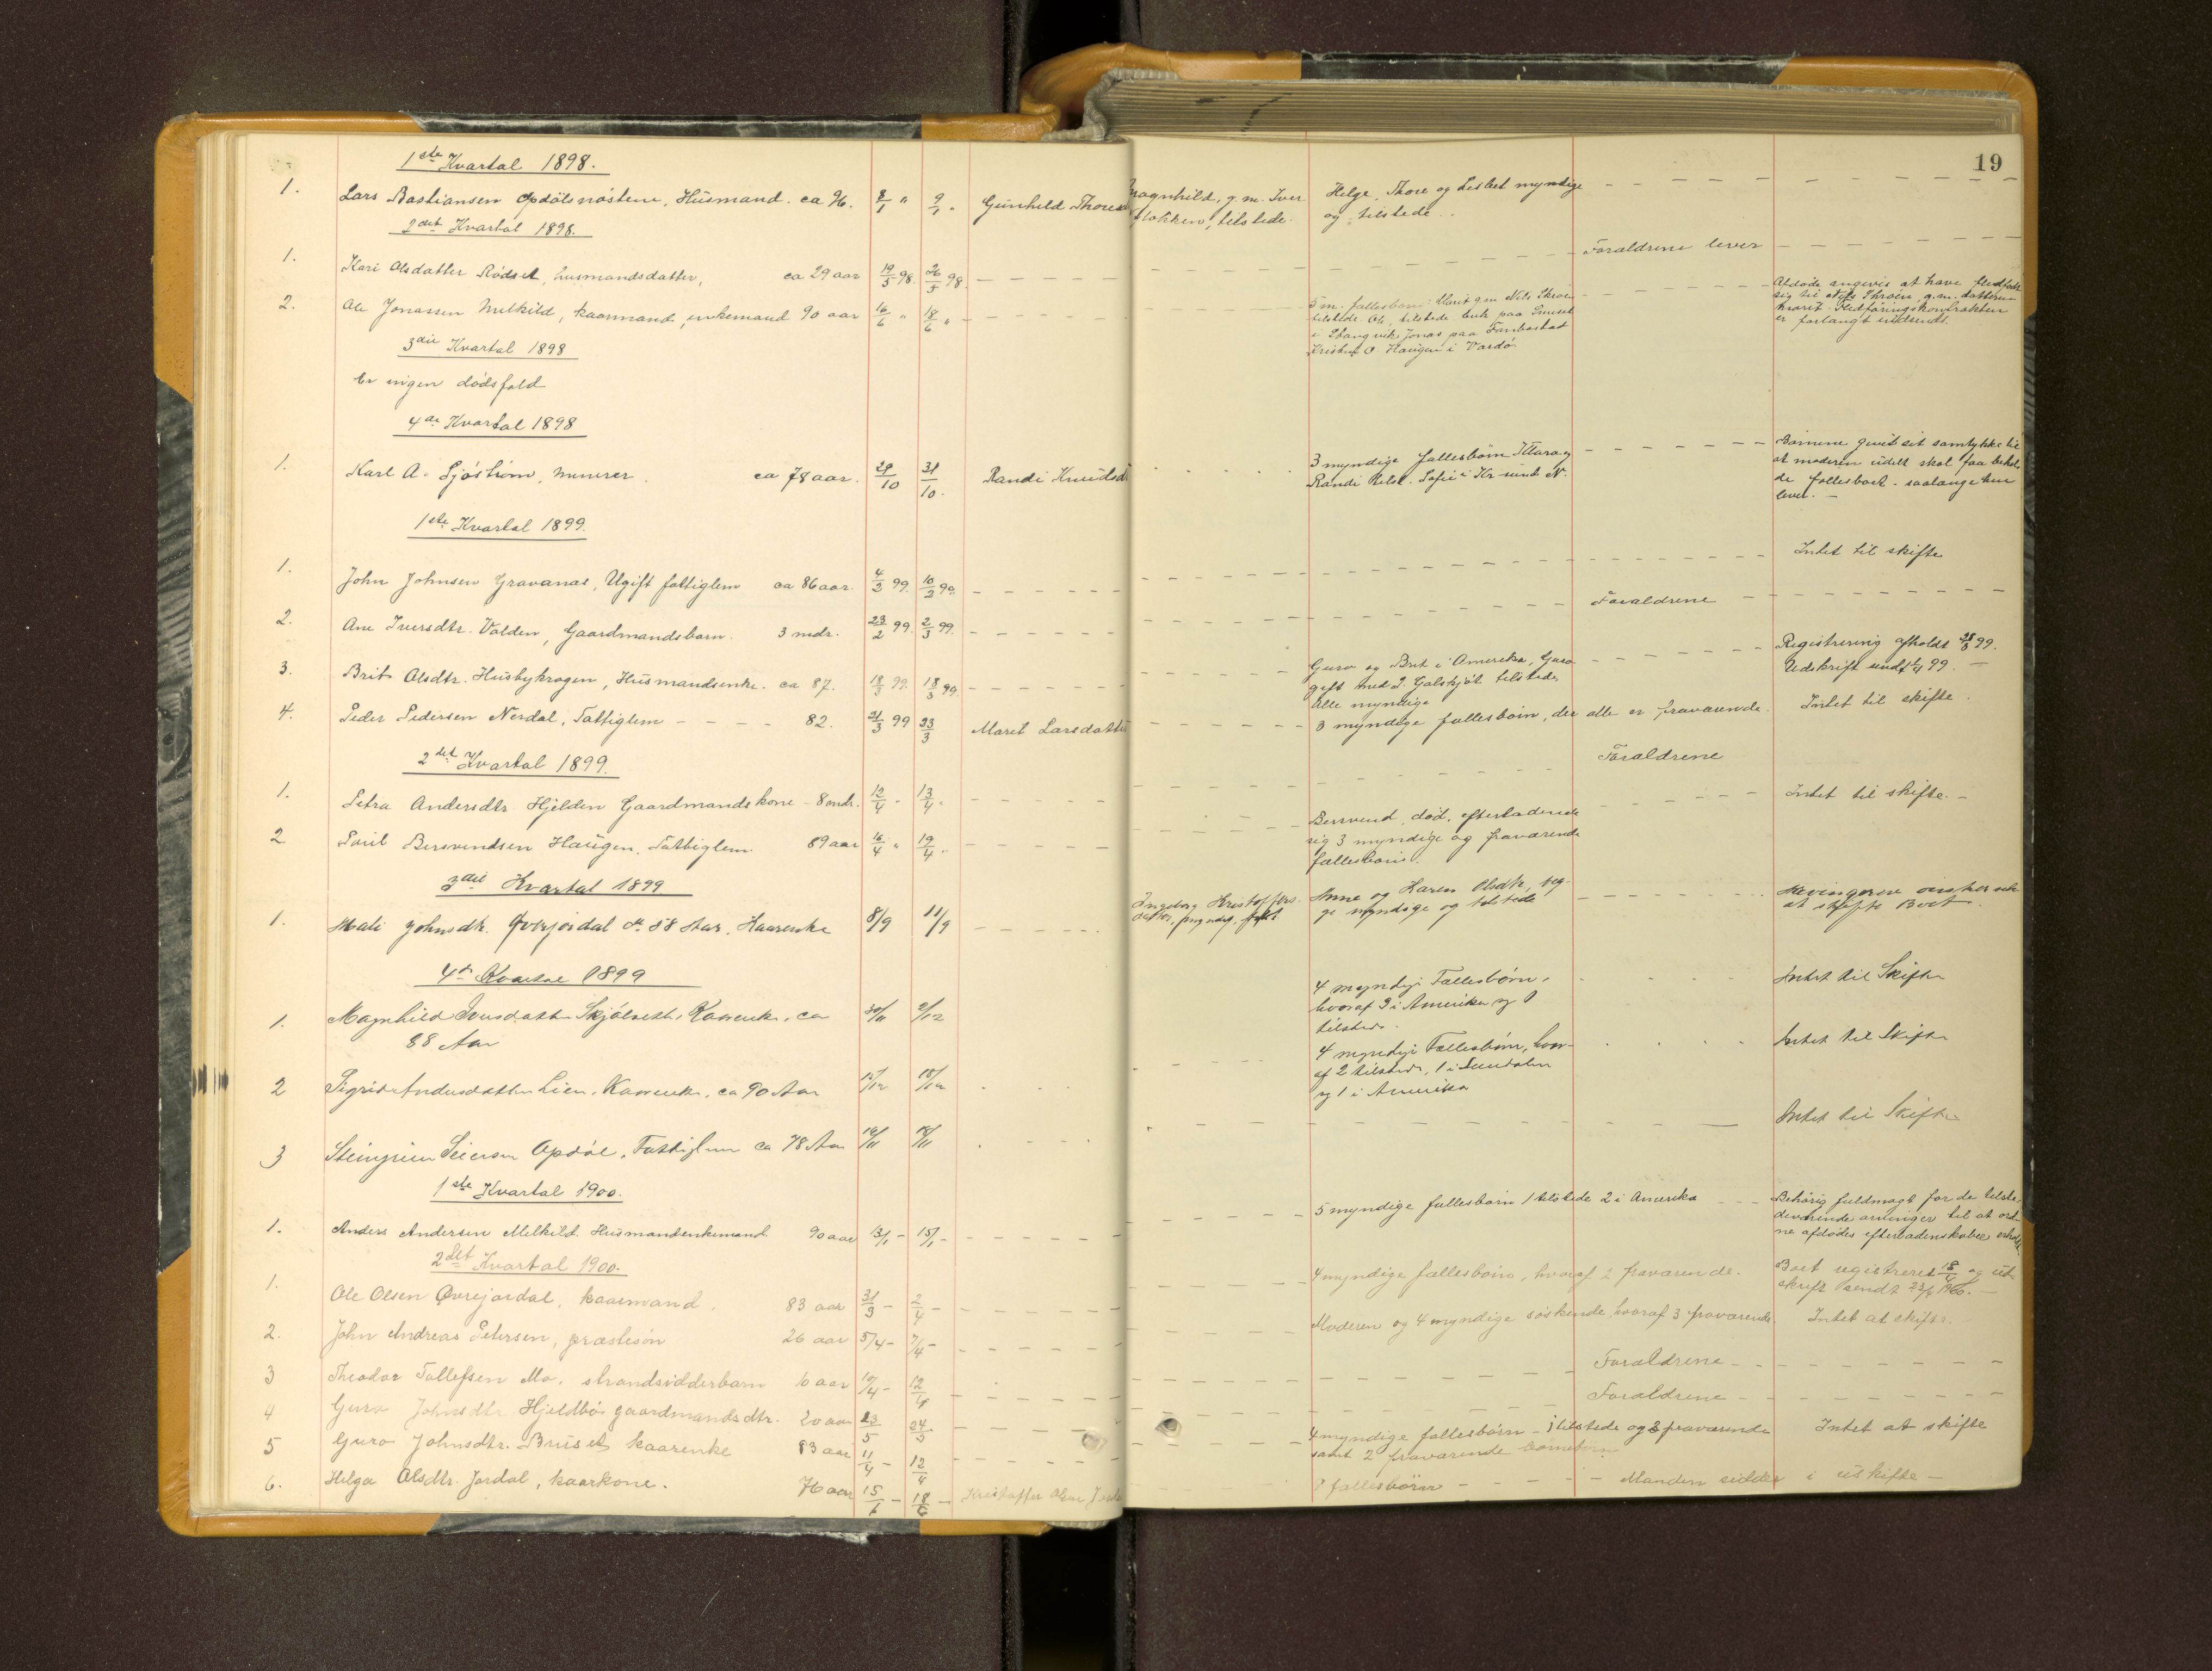 19
1ste Kvartal 1898.
1. Lars Bastiansen Opdölsnöstene, Husmand. ca 76. 8/1 " 9/1 " Gunhild Thores
Magnhild, g.m. Iver
Flokken, tilstede.
Helge, Thore og Lisbet myndige
og tilstede.
2det Kvartal 1898.
1. Kari Olsdatter Rödset, husmandsdatter, ca 29 aar 19/5 98. 26/5 98. Forældrene lever
2. Ole Jonassen Melkild, kaarmand, enkemand 90 aar 16/6 " 18/6 "
5 m. fællesbörn: Marit g.m. Nils Throen
tilstede Ole, tilstede bruk paa
i Stangvik Jonas paa
Kristof O. Haugen i Vardö
Afdöde angives at have fledfört
sig til Nils Throen, g.m. datteren
Marit. Fledföringskontrakten
er forlangt indsendt.
3die Kvartal 1898
Er ingen dödsfald
4de Kvartal 1898
1. Karl A. Sjöström, murer. ca 78 aar. 29/10 31/10. Randi Knudsd
3 myndige fællesbörn Klara og
Randi tilst. Sofie i Kr-sund N.
Börnene givet sit samtykke til
at moderen udelt skal faa behol-
de fællesboet - saalænge hun
lever. -
1ste Kvartal 1899.
1. John Johnsen Gravanæs, Ugift fattiglem ca 86 aar. 4/2 99. 10/2 99. Intet til skifte
2. Ane Iversdtr. Volden, Gaardmandsbarn. 3 mdr. 23/2 99. 2/3 99. Forældrene
3. Brit Olsdtr. Husbykragen, Husmandsenke. ca 87. 18/3 99. 18/3 99.
Guro og Brit i Amerika, Guro
gift med I. Galskjöt tilstede
Alle myndige
Registrering afholdt 28/3 99.
Udskrift sendt 99. -
4. Peder Pedersen Nerdal, Fattiglem - - - - 82. 21/3 99 23/3 Marit Larsdatter 3 myndige fællesbörn, der alle er fraværende. Intet til skifte.
2det Kvartal 1899.
1. Petra Andersdtr Hjelden Gaardmandskone - 8 mdr. 12/4 - 13/4 - Forældrene Intet til skifte. -
2 Poul Bersvendsen Haugen, Fattiglem. 89 aar 16/4 " 19/4 "
Bersvend, död, efterladende
sig 3 myndige og fraværende
fællesbörn.
3die Kvartal 1899
1. Mali Johnsdtr. Øvrejordal 58 Aar, Kaarenke 8/9 11/9
Ingeborg Kristoffers-
datter, myndig,
Anne og Karen Olsdtr, beg-
ge myndige og tilstede
Arvingerne önsker selv
at skifte Boet.
4de Kvartal 1899
1. Magnhild Iversdatter Skjölseth, Kaarenke, ca 30/11 2/12
88 Aar
4 myndige Fællesbörn,
hvoraf 3 i Amerika og 1
tilstede.
Intet til Skifte
2 Sigrid Andersdatter Lien, Kaarenke, ca 90 Aar 15/12 18/12
4 myndige Fællesbörn, hvor-
af 2 tilstede, 1 i Sundalen
og 1 i Amerika
Intet til Skifte
3 Steingrim Opdöl, Fattiglem ca 78 Aar 16/11 18/11 Intet til Skifte
1ste Kvartal 1900.
1. Anders Andersen Melkild. Husmandenkemand 90 aar 13/1 - 15/1 - 5 myndige fællesbörn 1 tilstede 2 i Amerika
Behörig fuldmagt for de tilste-
deværende arvinger til at ord-
ne afdödes efterladenskaber
2det Kvartal 1900.
1. Ole Olsen Øvrejordal, kaarmand. 83 aar 31/3 - 2/4 - 4 myndige fællesbörn, hvoraf 2 fraværende.
Boet registreret 18/4 og ud-
skrift sendt 23/4 1900. -
2. John Andreas Petersen, præstesön 26 aar 5/4 - 7/4 - Moderen og 4 myndige söskende, hvoraf 3 fraværende Intet at skifte.
3 Theodor Tollefsen Mo. strandsidderbarn 10 aar 10/4 - 12/4 Forældrene
4 Guro Johnsdtr. Hjeldbö gaardmandsdtr. 20 aar 23/5 24/5 Forældrene
5 Guro Johnsdtr. Bruset kaarenke 83 aar 11/4 - 12/4
4 myndige fællesbörn - 1 tilstede og 3 fraværende
samt 2 fraværende börnebörn
Intet at skifte
6. Helga Olsdtr. Jordal, kaarkone. 76 aar 15/6 - 18/6 - Kristoffer Olsen fællesbörn - - - - Manden sidder i uskifte -